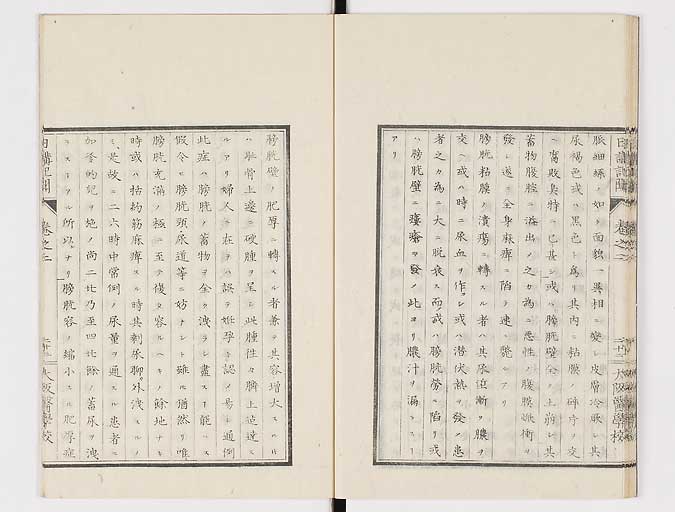 脈細緜ノ如ク面貌ハ異相ニ變シ皮膚冷厥シ其
尿褐色或ハ黒色ト爲リ其内ニ粘膜ノ碎片ヲ交
ヘ腐敗臭特ニ已甚シ或ハ膀胱壁全ク土崩シ其
蓄物腹腔ニ溢出ノ之カ為ニ惡性ノ腹膜焮衝ヲ
發シ遂ニ全身麻痺ニ陥テ速ニ斃ルアリ
膀胱粘膜ノ潰瘍ニ轉スル者ハ其尿漸ク膿ヲ
交ヘ或ハ時ニ尿血ヲ作シ或ハ潜伏熱ヲ發ノ患
者之カ為ニ大ニ脱衰ス而或ハ膀胱勞ニ陥リ或
ハ膀胱壁ニ瘻瘡ヲ發ノ此ヨリ膿汁ヲ漏スヿ
アリ
日講記聞
卷之二
大阪醫學校
膀胱壁ノ肥厚ニ轉スル者兼テ其容増大スルハ
ハ耻骨上邊ニ硬腫ヲ呈シ此腫徃々臍上迄達ス
ルアリ婦人ニ在テハ誤テ姙孕ト認ノ易シ通例
此症ハ膀胱ノ蓄物ヲ全ク洩ラシ盡スヿ能ハス
假令ヒ膀胱頸尿道等ニ妨ナシト雖ル猶然リ唯
膀胱充滿ノ極ニ至テ復タ容ルヘキノ餘地ナキ
時或ハ括約筋麻痺スル時其剰尿聊外洩スルノ
ミ是故ニ二六時中常例ノ尿量ヲ通スル患者ニ
シヿアル所以ナリ膀胱容ノ縮小スル肥厚症
日講記聞
卷之二
大阪醫學校